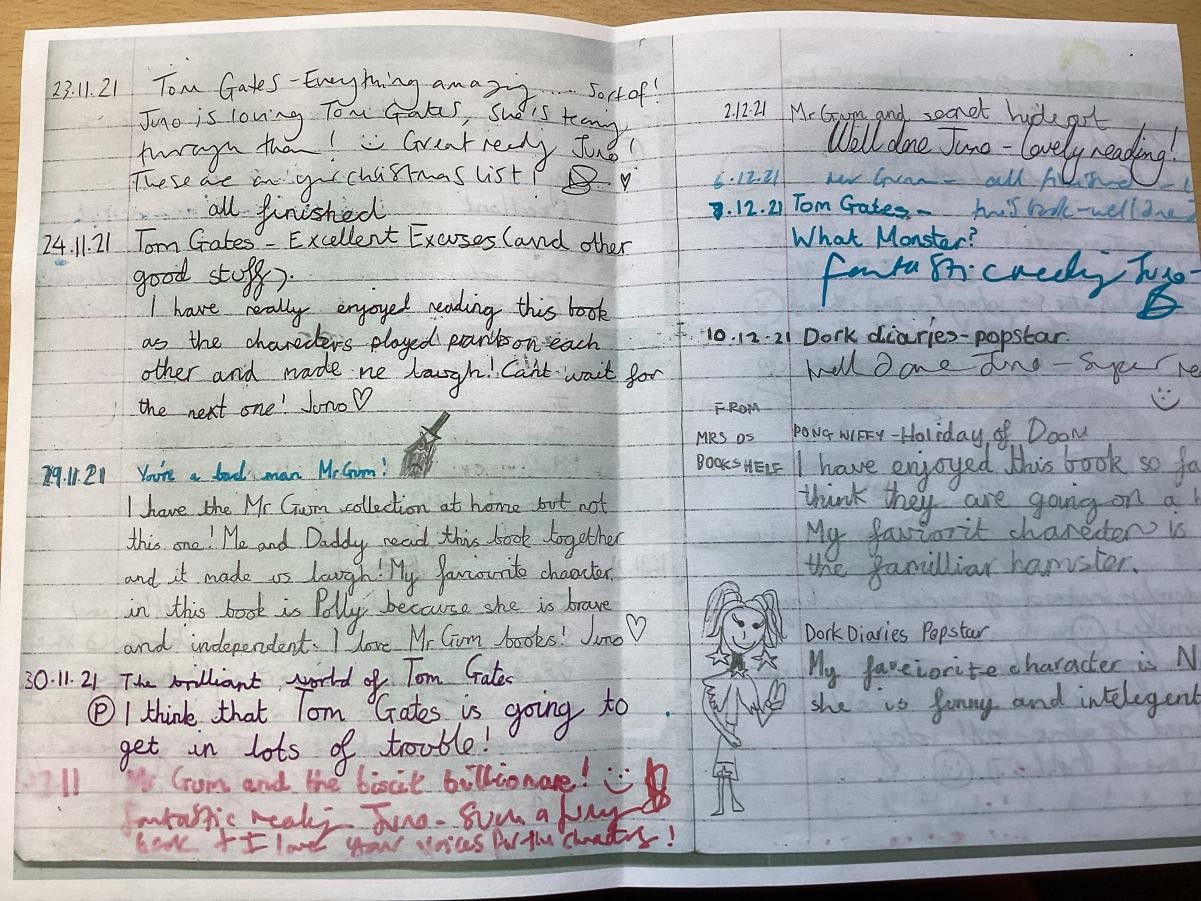 23.11.21 Tom Gates - Everything amazing ..... Sort of!
Juno is loving Tom Gates, she's tearing
through them! Great reading Juno!
These are on your christmas list! ♡
all finished
24.11.21 Tom Gates - Excellent Excuses (and other
good stuff).
I have really enjoyed reading this book
as the charecters played pranks on each
other and made me laugh! Can't wait for
the next one! Juno ♡
29.11.21 You're a bad man Mr Gum!
I have the Mr Gum collection at home but not
this one! Me and Daddy read this book together
and it made us laugh! My faviourite character
in this book is Polly because she is brave
and independent. I love Mr Gum books! Juno ♡
30.11.21 The brilliant world of Tom Gates
Ⓟ I think that Tom Gates is going to
get in lots of trouble!
.11 Mr Gum and the biscit billionare!
fantastic reading Juno - Such a funny
book + I love your voices for the characters!
2.12.21 Mr Gum and secret hideout
Well done Juno - Lovely reading!
6.12.21 Mr Gum - all finished -
7.12.21 Tom Gates - this book - well done
What Monster?
fantastic reading Juno -
10.12.21 Dork diaries - popstar.
Well Done Juno - Super
FROM
MRS DS
BOOKSHELF
PONG WIFFY - Holiday of Doom
I have enjoyed this book so fa
think they are going on a
My faviorit charecter is
the familliar hamster.
Dork Diaries Popstar
My faveiorite character is N
she is funny and intelegent